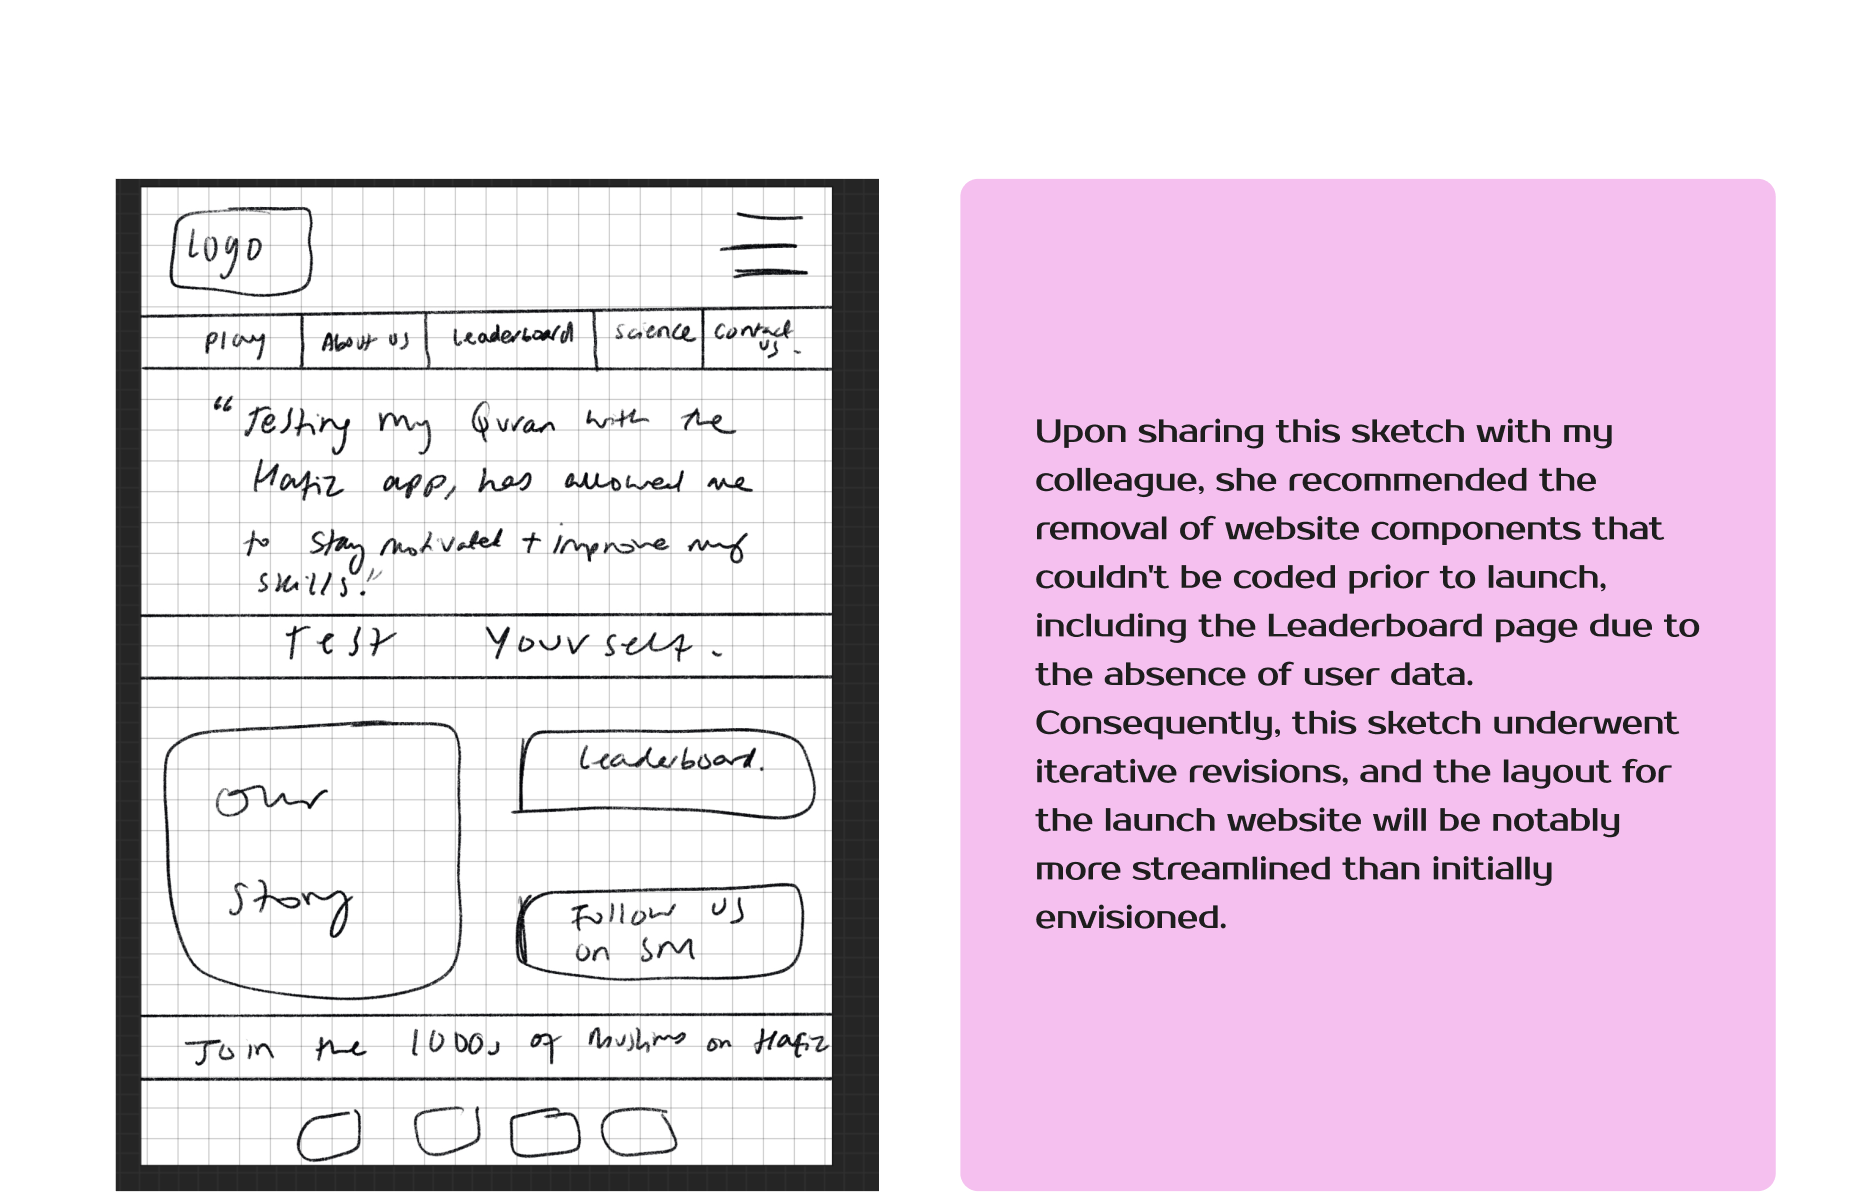 Logo
Play
About us
Leaderboard
Science
Contact
us.
"Testing my Quran with the
Hafiz app, has allowed me
to stay motivated + improve my
skills."
Test Yourself.
Our
Story
Leaderboard.
Follow us
on SM
Join the 1000s of Muslims on Hafiz
Upon sharing this sketch with my
colleague, she recommended the
removal of website components that
couldn't be coded prior to launch,
including the Leaderboard page due to
the absence of user data.
Consequently, this sketch underwent
iterative revisions, and the layout for
the launch website will be notably
more streamlined than initially
envisioned.